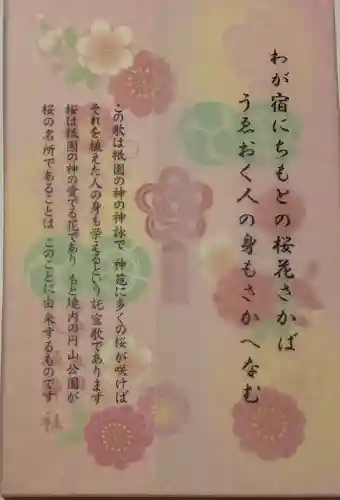 わが宿にちもとの桜花さかば
うゑおく人の身もさかへなむ
この歌は祇園の神の神詠で 神苑に多くの桜が咲けば
それを植えた人の身も栄えるという託宣歌であります
桜は祇園の神の愛でる花であり もと境内の円山公園が
桜の名所であることは このことに由来するものです